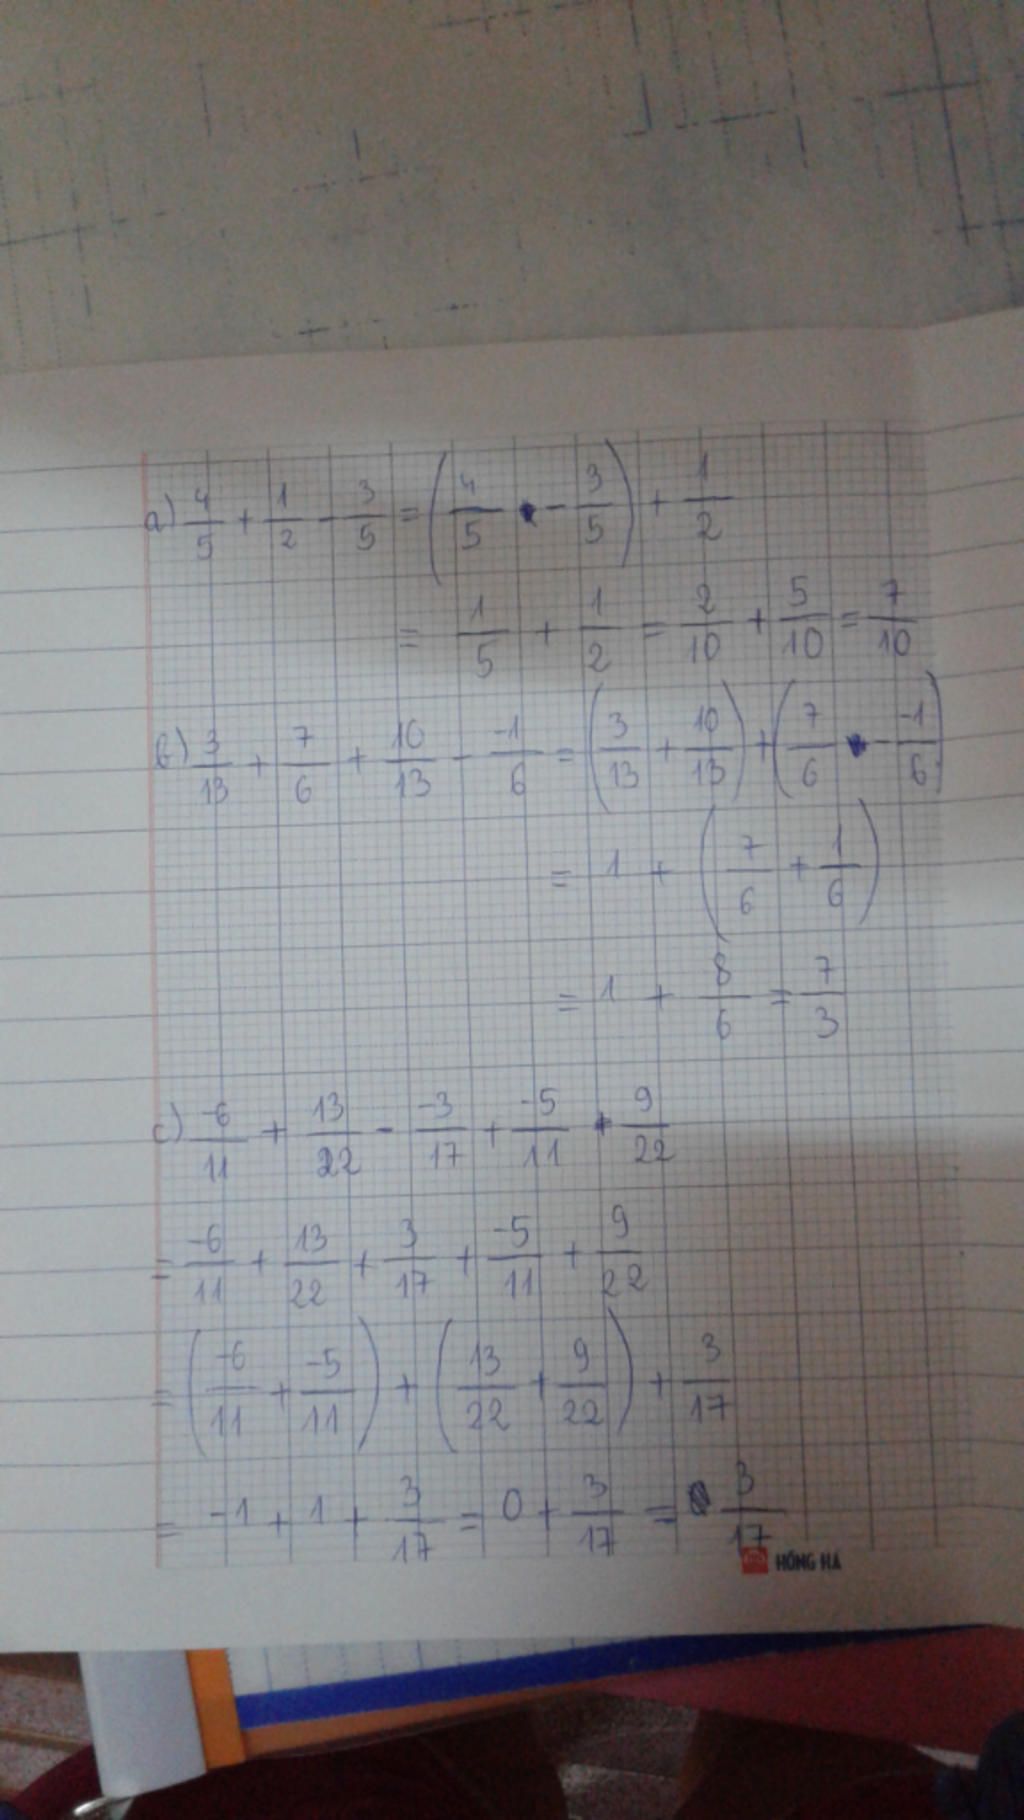 a) 4/5 + 1/2 - 3/5 = (4/5 - 3/5) + 1/2
= 1/5 + 1/2 = 2/10 + 5/10 = 7/10
b) 3/13 + 7/6 + 10/13 - -1/6 = (3/13 + 10/13) + (7/6 - -1/6)
= 1 + (7/6 + 1/6)
= 1 + 8/6 = 7/3
c) -6/11 + 13/22 - -3/17 + -5/11 + 9/22
= -6/11 + 13/22 + 3/17 + -5/11 + 9/22
= (-6/11 + -5/11) + (13/22 + 9/22) + 3/17
= -1 + 1 + 3/17 = 0 + 3/17 = 3/17
HỒNG HÀ